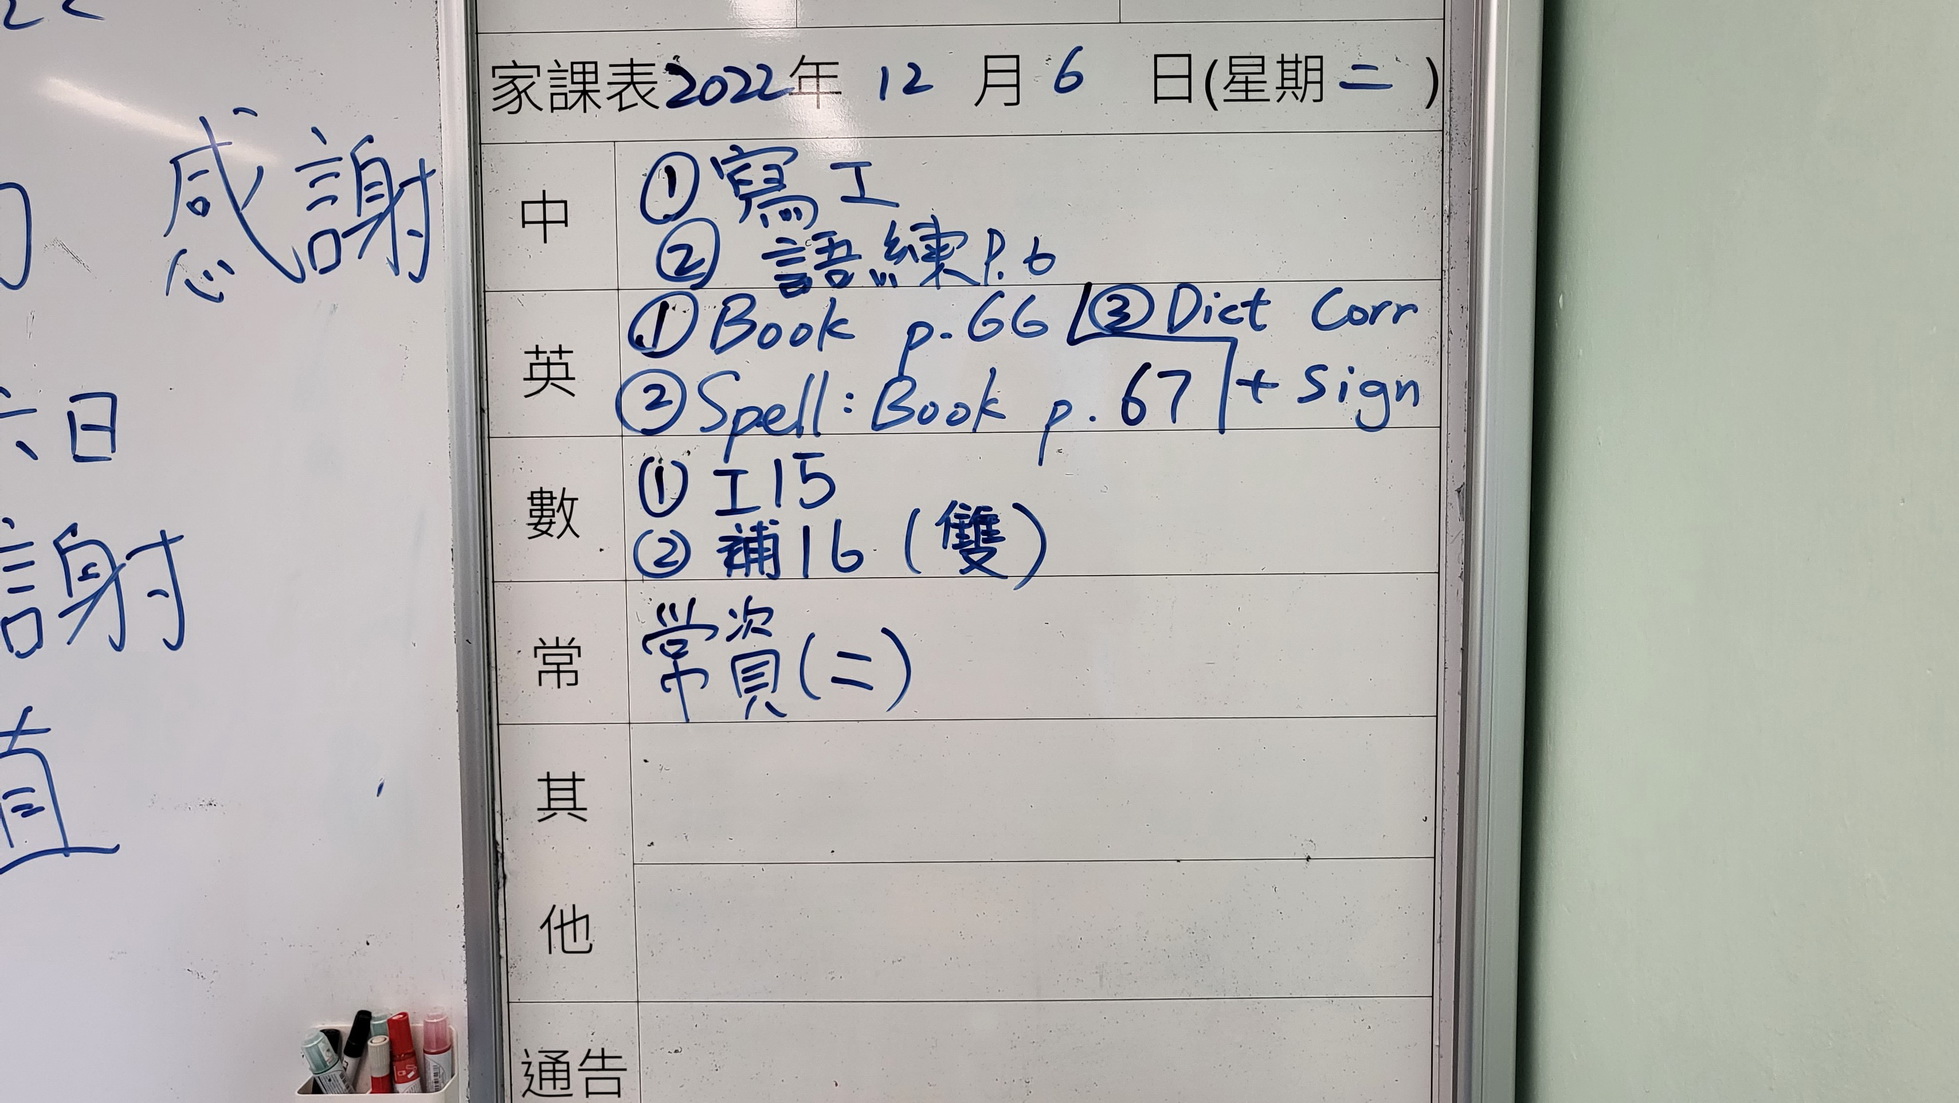 感謝
六日
謝
值
家課表2022年 12 月 6 日(星期二)
中
①寫工
② 語練P.6
英
①Book p.66 ③Dict Corr
②Spell: Book p.67 + Sign
數
① 工15
② 補16 (雙)
常
常資(二)
其
他
通告